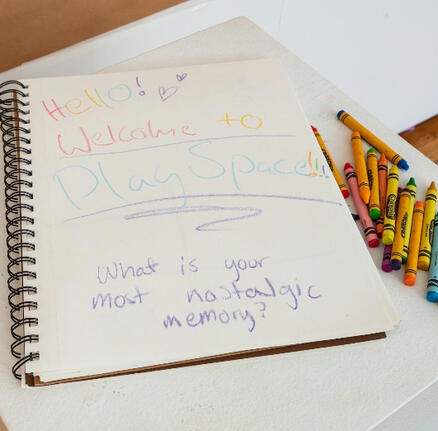 Hello!
Welcome to
Play Space!!!
What is your
most nostalgic
memory?